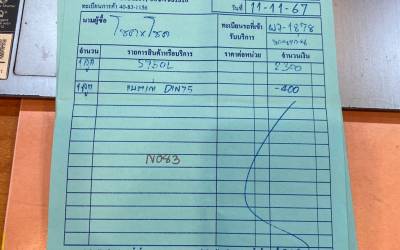 ทะเบียนการค้า 40-83-1156
วันที่ 11-11-67
นามผู้ซื้อ โชควโชค
ทะเบียนรถที่เข้ารับบริการ ผว-1878
จำนวน รายการสินค้าหรือบริการ ราคาต่อหน่วย จำนวนเงิน
1 ลูก S95DL 2300
1 ลูก DIN75 -400
N083